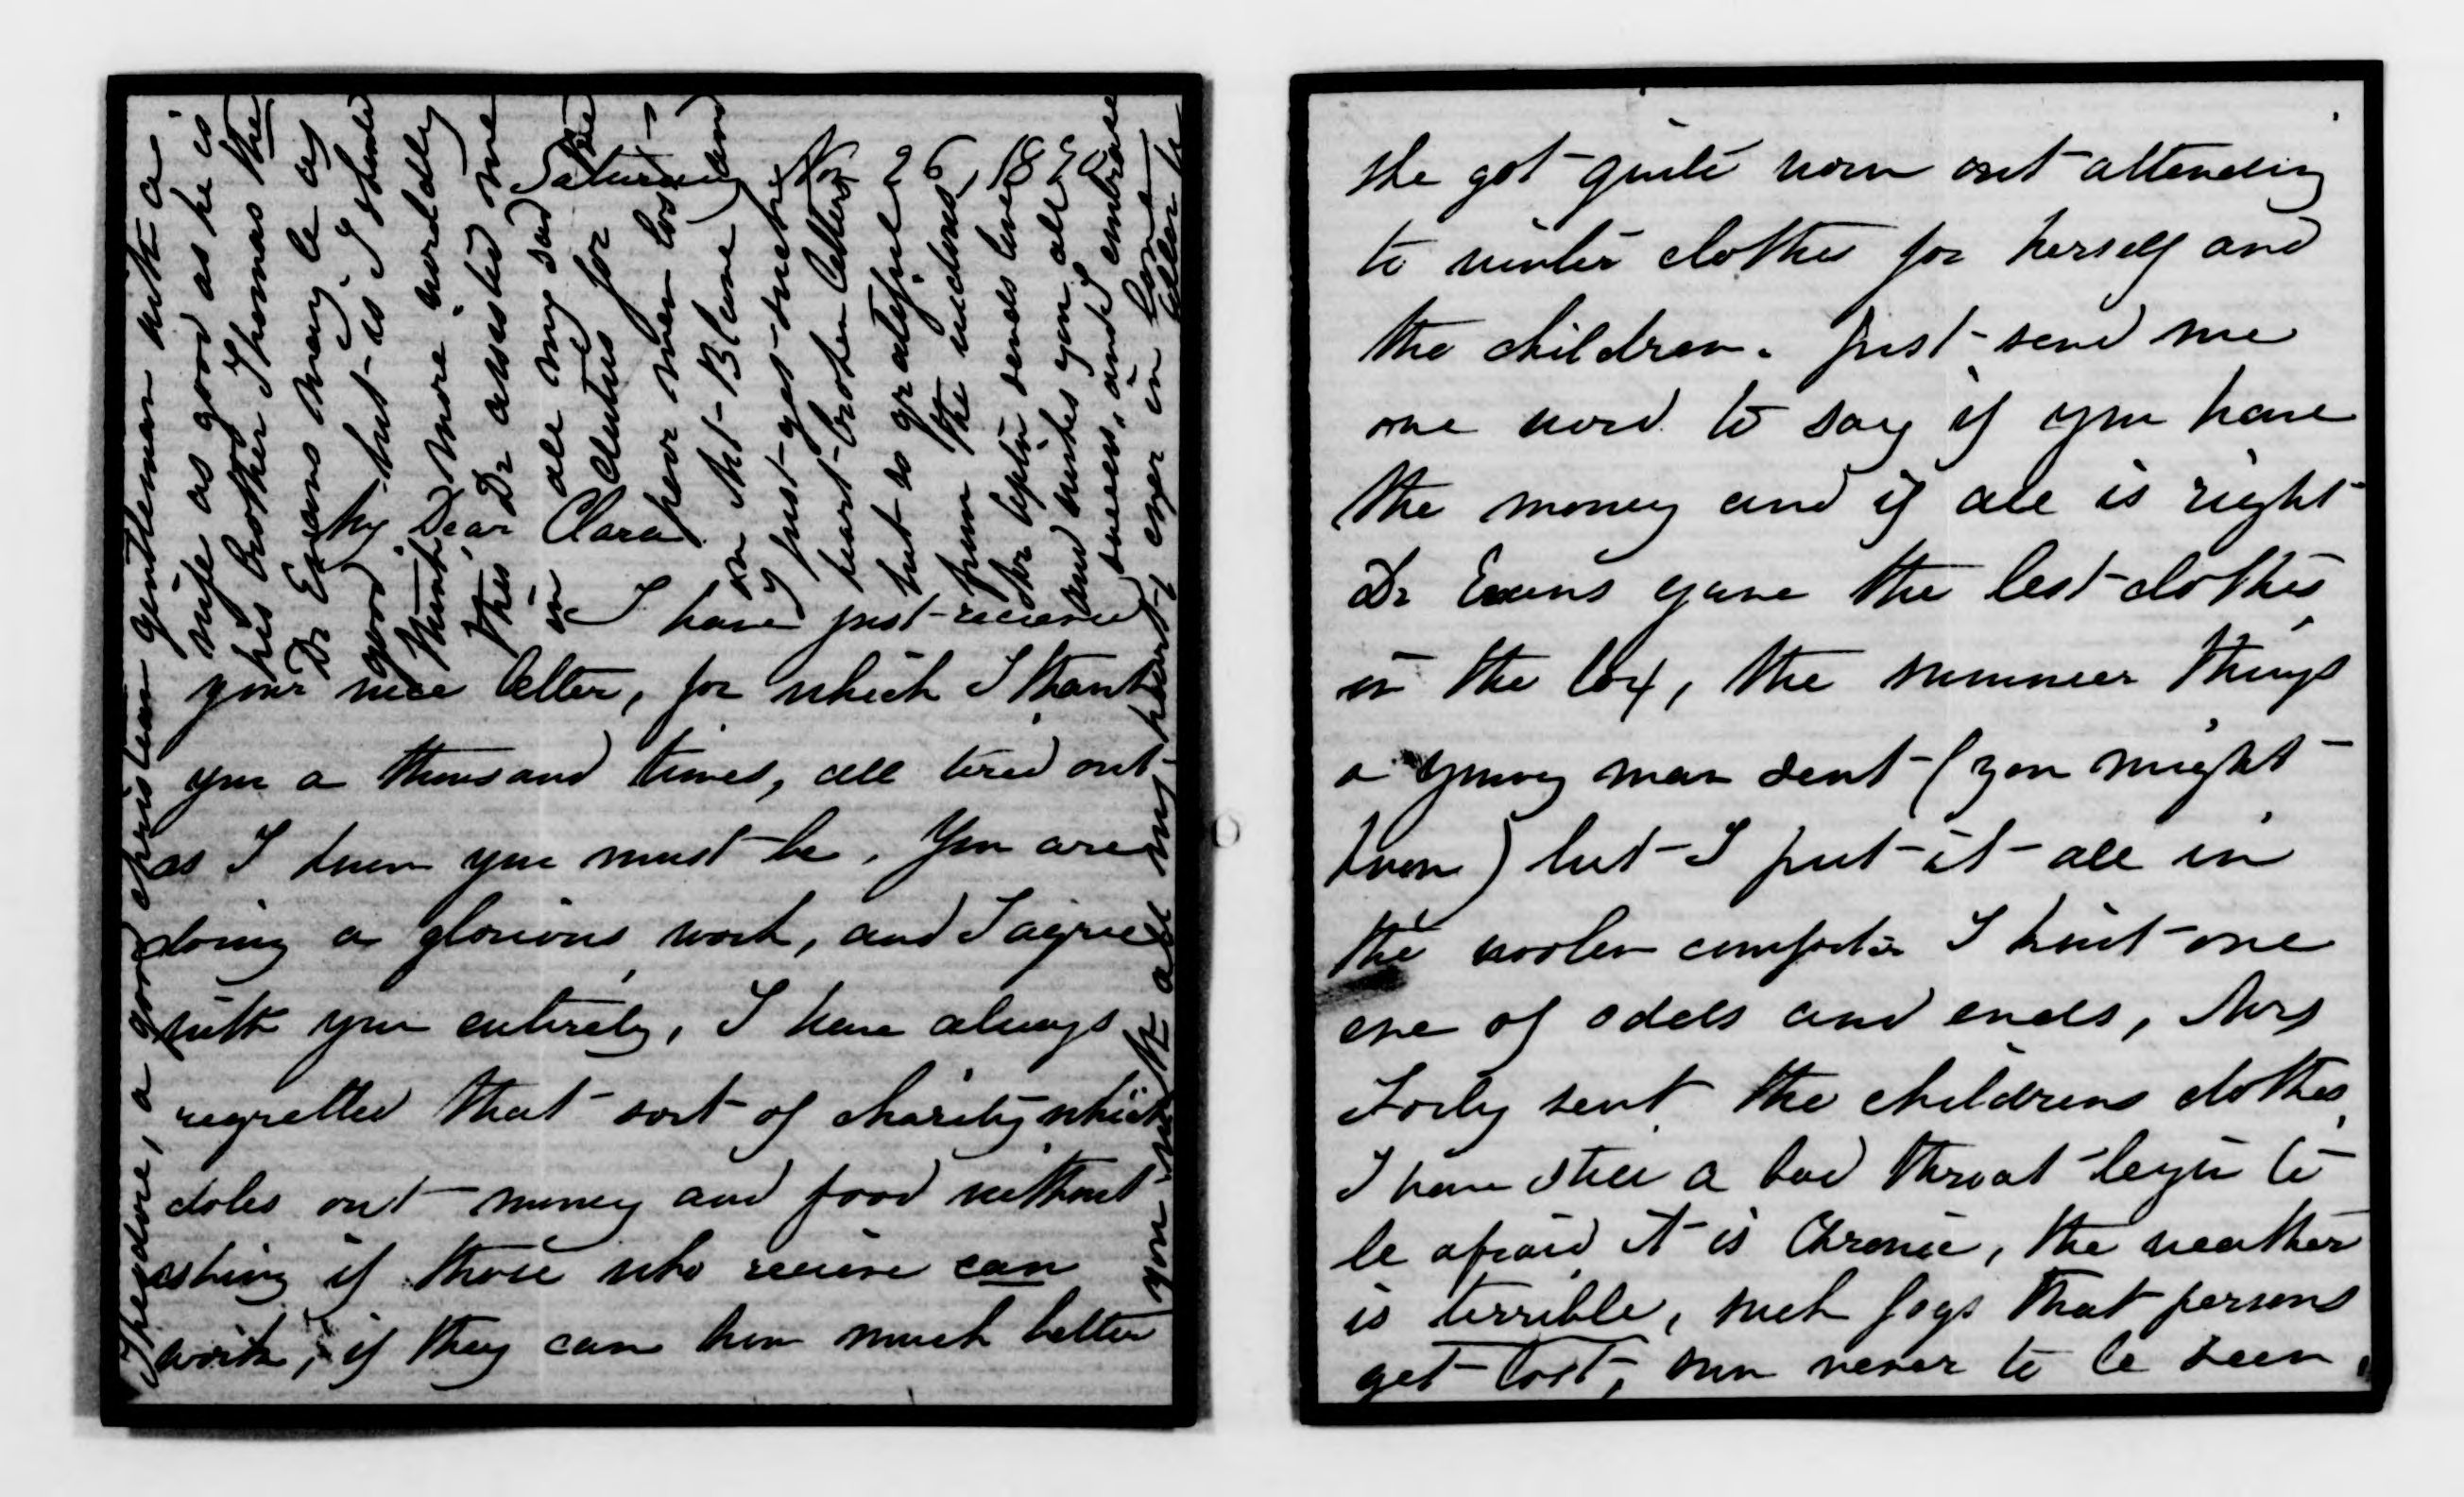 Saturday Nov 26, 1870
My Dear Clara
I have just received
your nice letter, for which I thank
you a thousand times, all tired out
as I know you must be. You are
doing a glorious work, and I agree
with you entirely, I have always
regretted that sort of charity which
doles out money and food without
asking if those who receive can
work, if they can how much better
Theodore, a good christian gentleman with a
wife as good as he is
his brother Thomas the
Dr Evans may be as
good but is I should
think more worldly
this Dr assisted me
in all my sad
for
poor men lost
on Mt Blanc and
I just got such
heart broken letters
but so grateful
from the widows,
sends love
and wishes you all
success, and embrace
you with all my heart, ever in love
she got quite worn out attending
to winter clothes for herself and
the children. Just send me
one word to say if you have
the money and if all is right
Dr Evans gave the best clothes
in the box, the summer things
a young man sent (you might
know) but I put it all in
the woolen comforter I knit one
one of odds and ends, Mrs
sent the childrens clothes,
I have still a bad throat begin to
be afraid it is Chronic, the weather
is terrible, such fogs that persons
get lost, sun never to be seen,